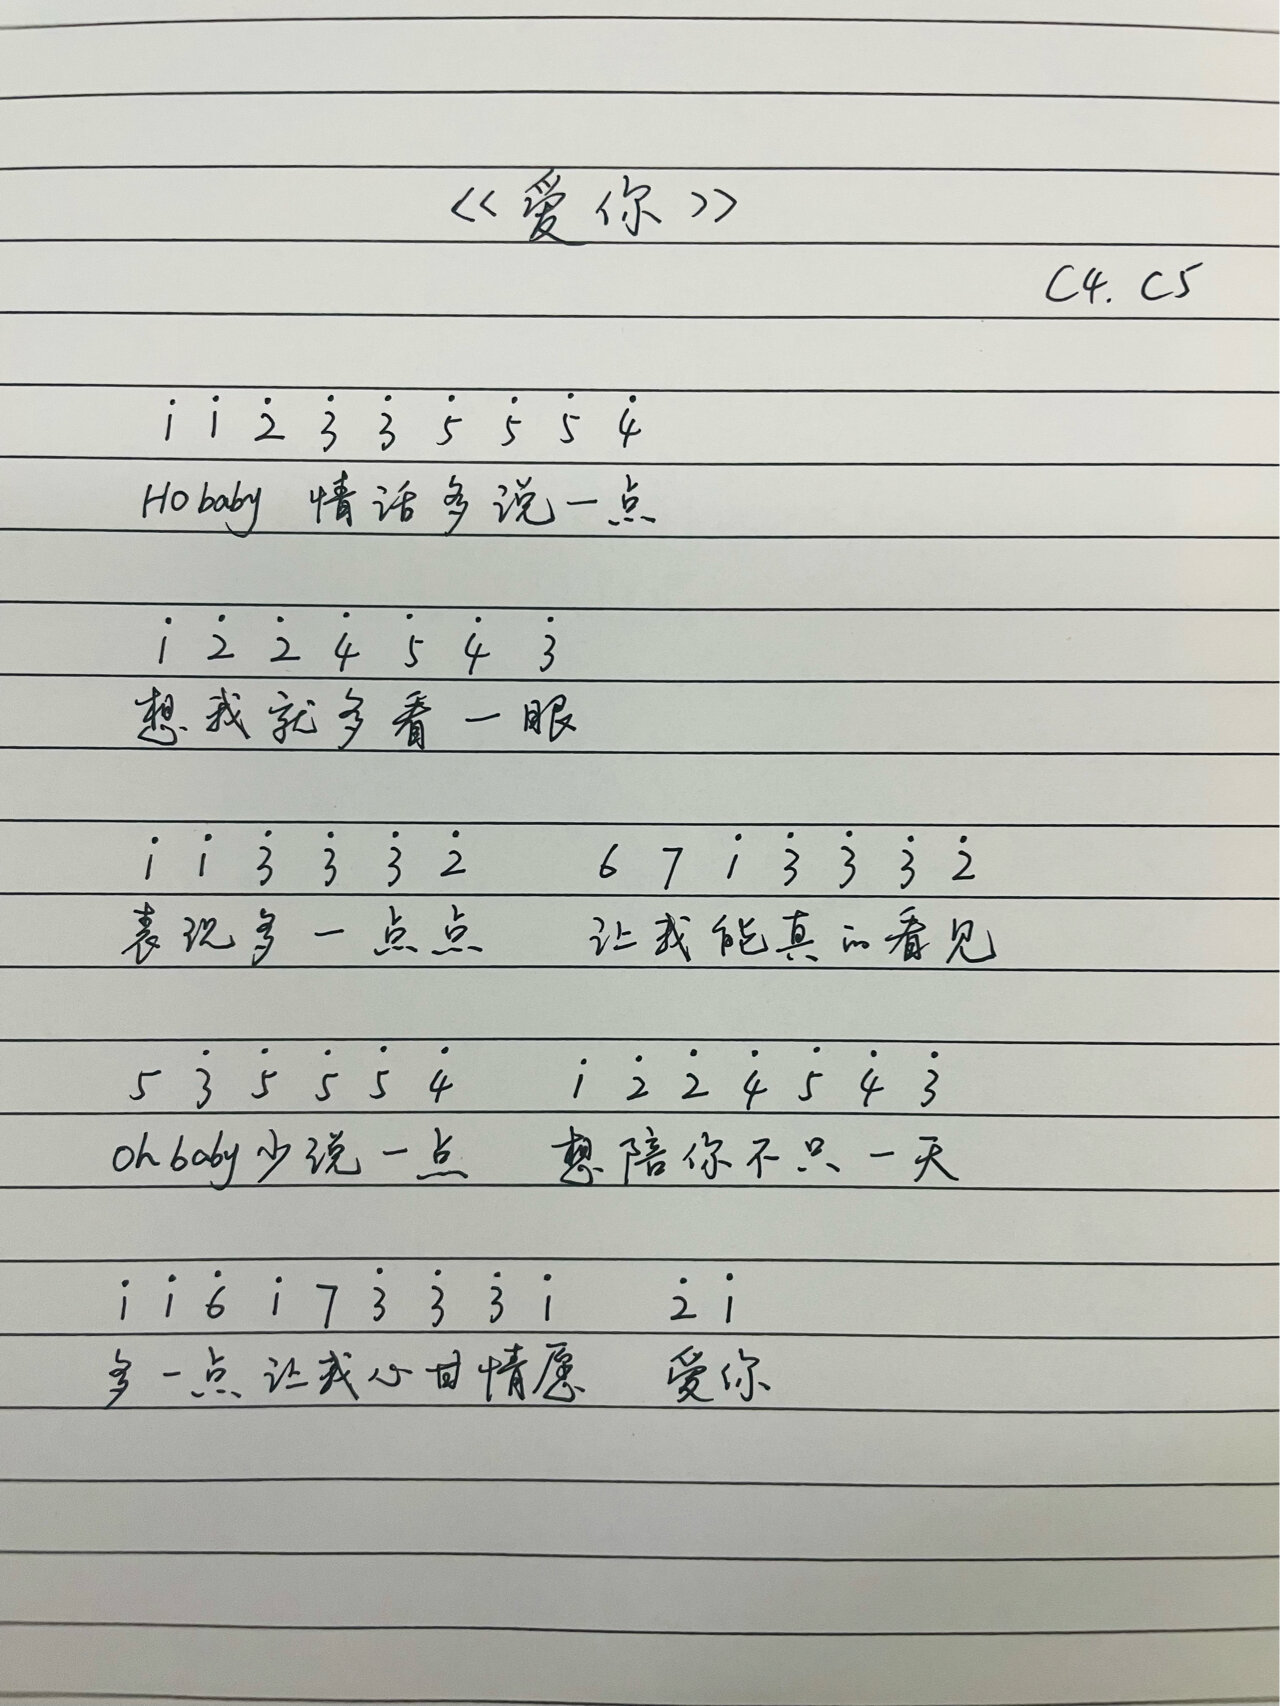 <<爱你>>
C4. C5
i̇ i̇ 2̇ 3̇ 3̇ 5̇ 5̇ 5̇ 4̇
Ho baby 情话多说一点
i̇ 2̇ 2̇ 4̇ 5̇ 4̇ 3̇
想我就多看一眼
i̇ i̇ 3̇ 3̇ 3̇ 2̇ 6 7 i̇ 3̇ 3̇ 3̇ 2̇
表现多一点点 让我能真的看见
5 3̇ 5̇ 5̇ 5̇ 4̇ i̇ 2̇ 2̇ 4̇ 5̇ 4̇ 3̇
Oh baby 少说一点 想陪你不只一天
i̇ i̇ 6̇ i̇ 7 3̇ 3̇ 3̇ i̇ 2̇ i̇
多一点让我心甘情愿 爱你